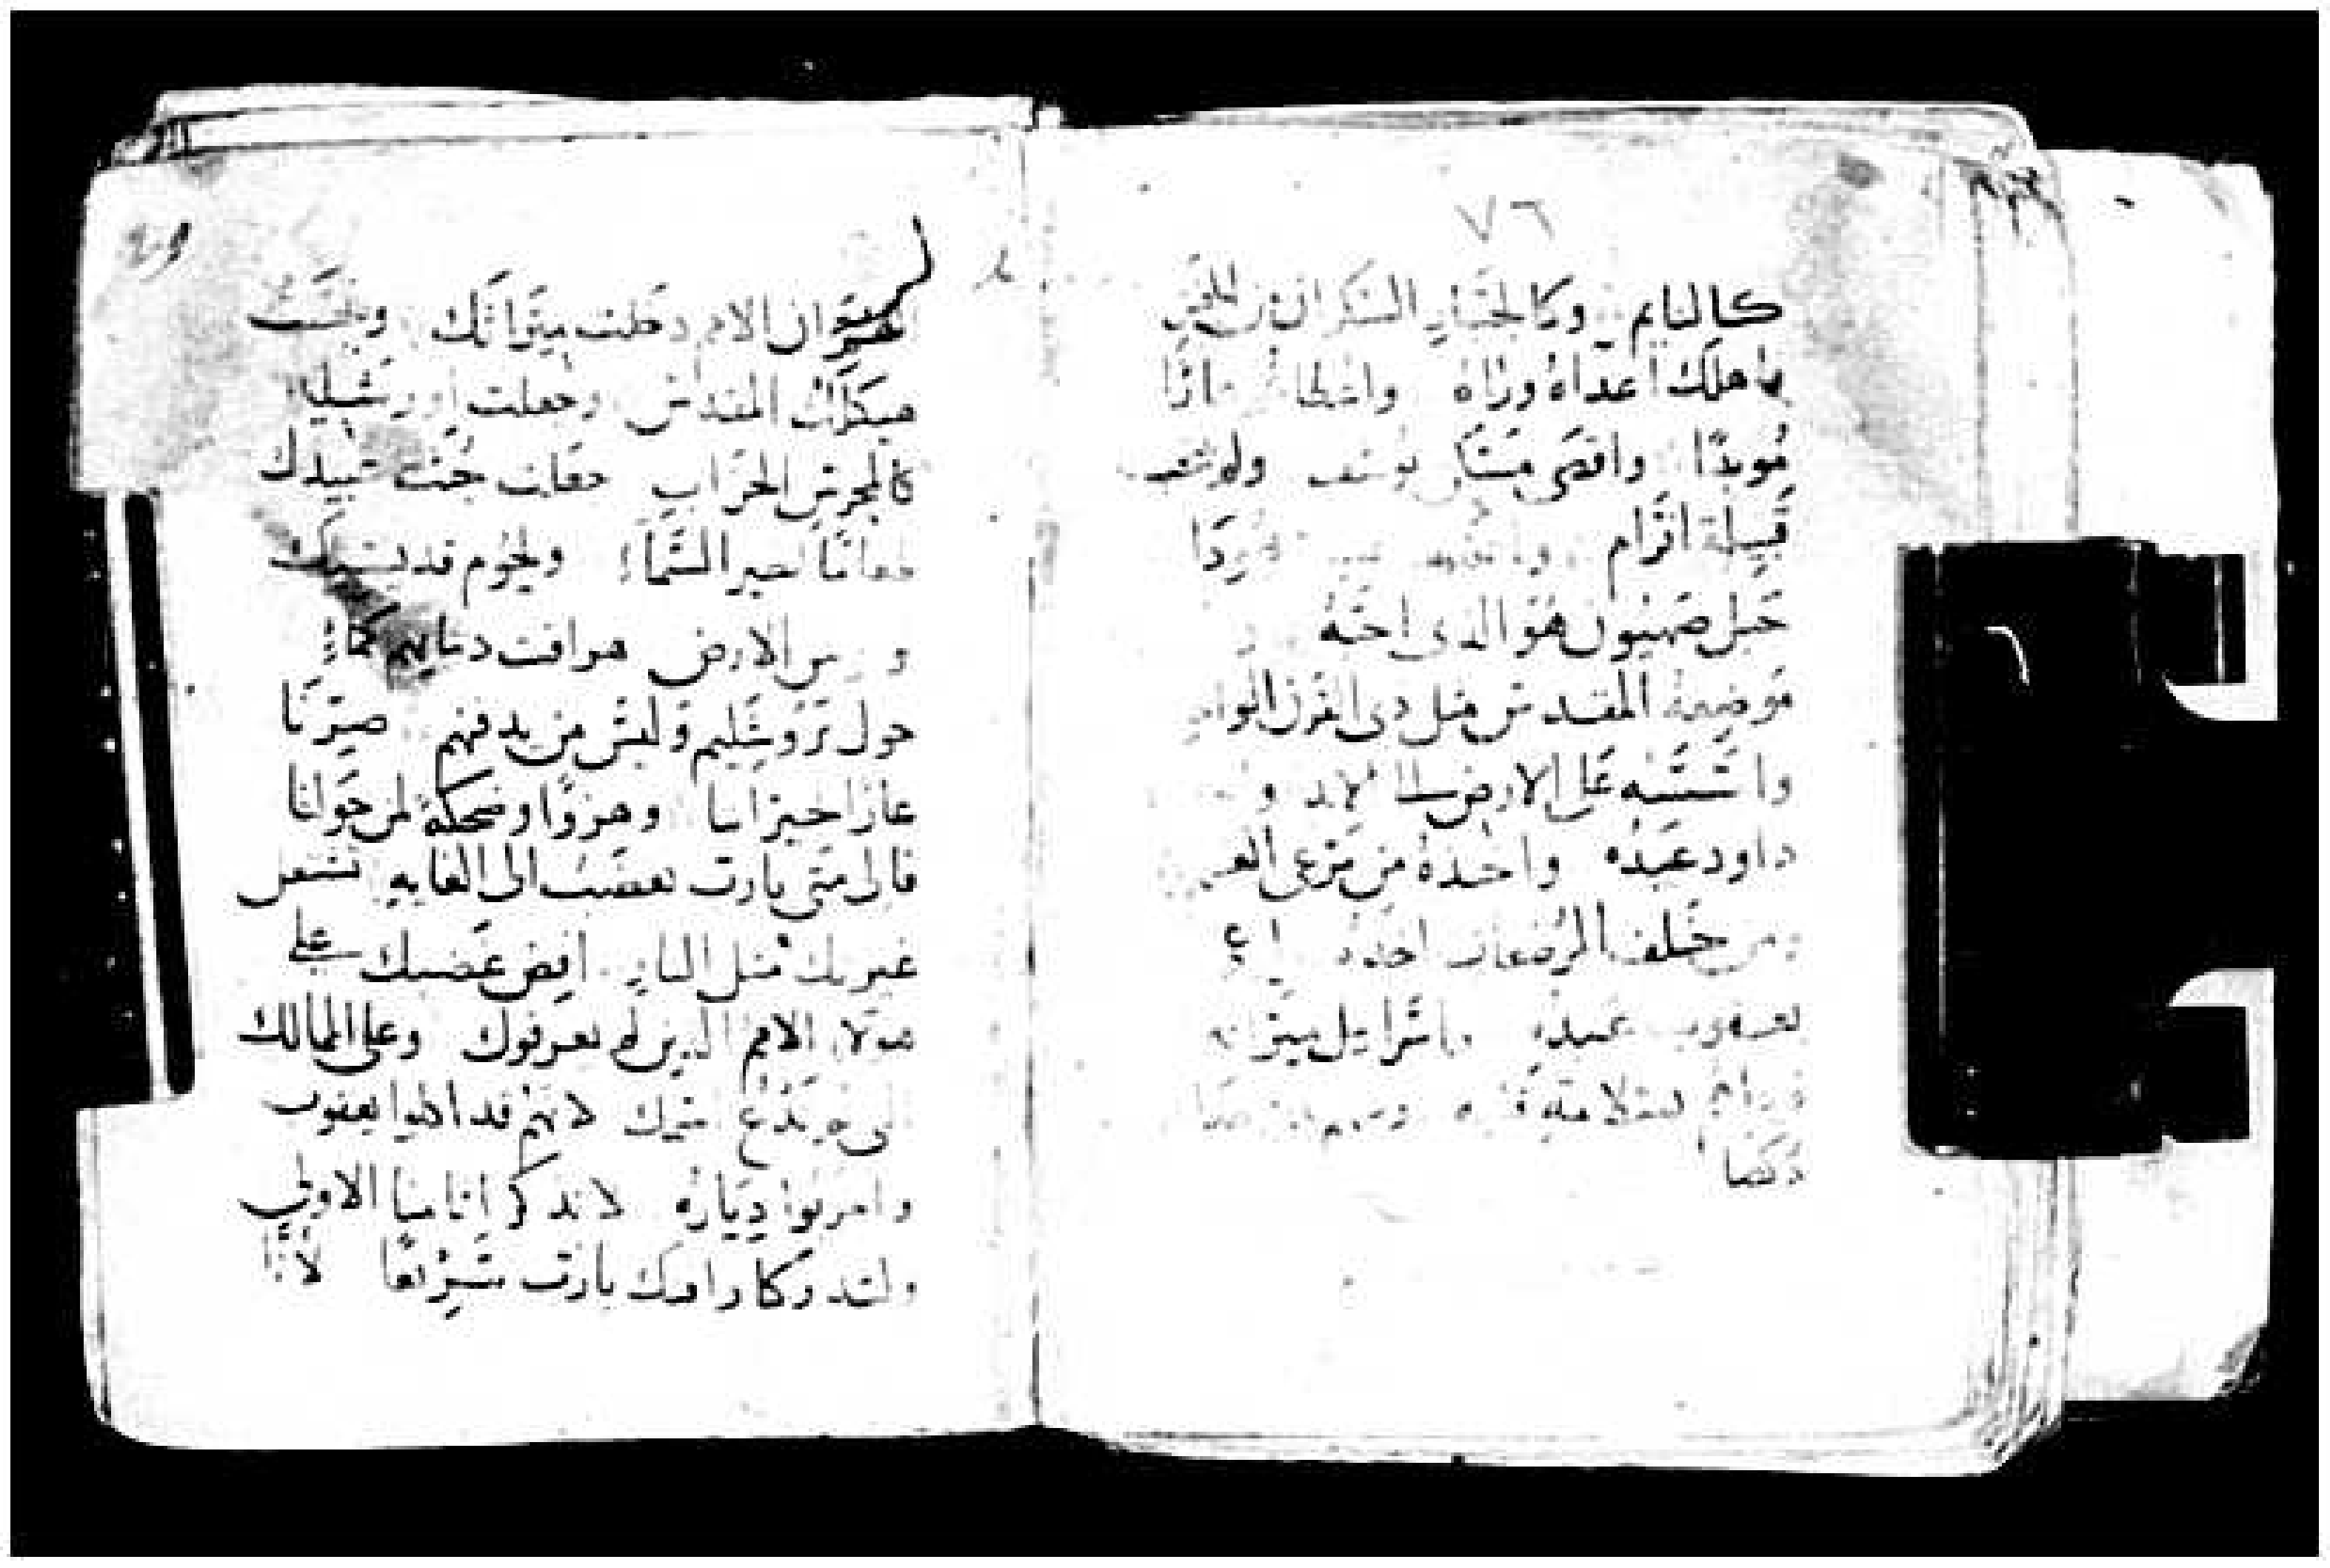 ٧٦
كالنايم وكالجبار السكران من الخمر
فاهلك اعداه وراه واعطاهم عارًا
مُوبدًا واقصى مسكن يوسف ولم
قبيلة افرام يهودا
جبل صهيون هو الذى احبه
موضعه المقدس مثل ذى القرن الواحد
واسسه على الارض الى الابد و
داود عبده واخذه من مرعى الغنم
ومن خلف المرضعات اخذه
يعقوب عبده واسرايل ميراثه
بسلامة قلبه
اللهم ان الامم دخلت ميراثك ونجست
هيكلك المقدس وجعلت اورشليم
كالمحرس الخراب جعلت جثث عبيدك
طعامًا لطير السماء ولحوم قديسيك
الارض هراقت دمايهم كماء
حول يروشليم وليس من يدفنهم صرنا
عارًا لجيراننا وهزوًا وضحكة لمن حوالنا
فالى متى يارب تغضب الى الغايه تشتعل
غيرتك مثل النار افض غضبك على
هولاء الامم الذين لم يعرفوك وعلى الممالك
التى لم تدع اسمك لانهم قد اكلوا يعقوب
واخربوا دياره لا تذكر اثامنا الاولى
ولتدركنا رافتك يارب سريعًا لاننا